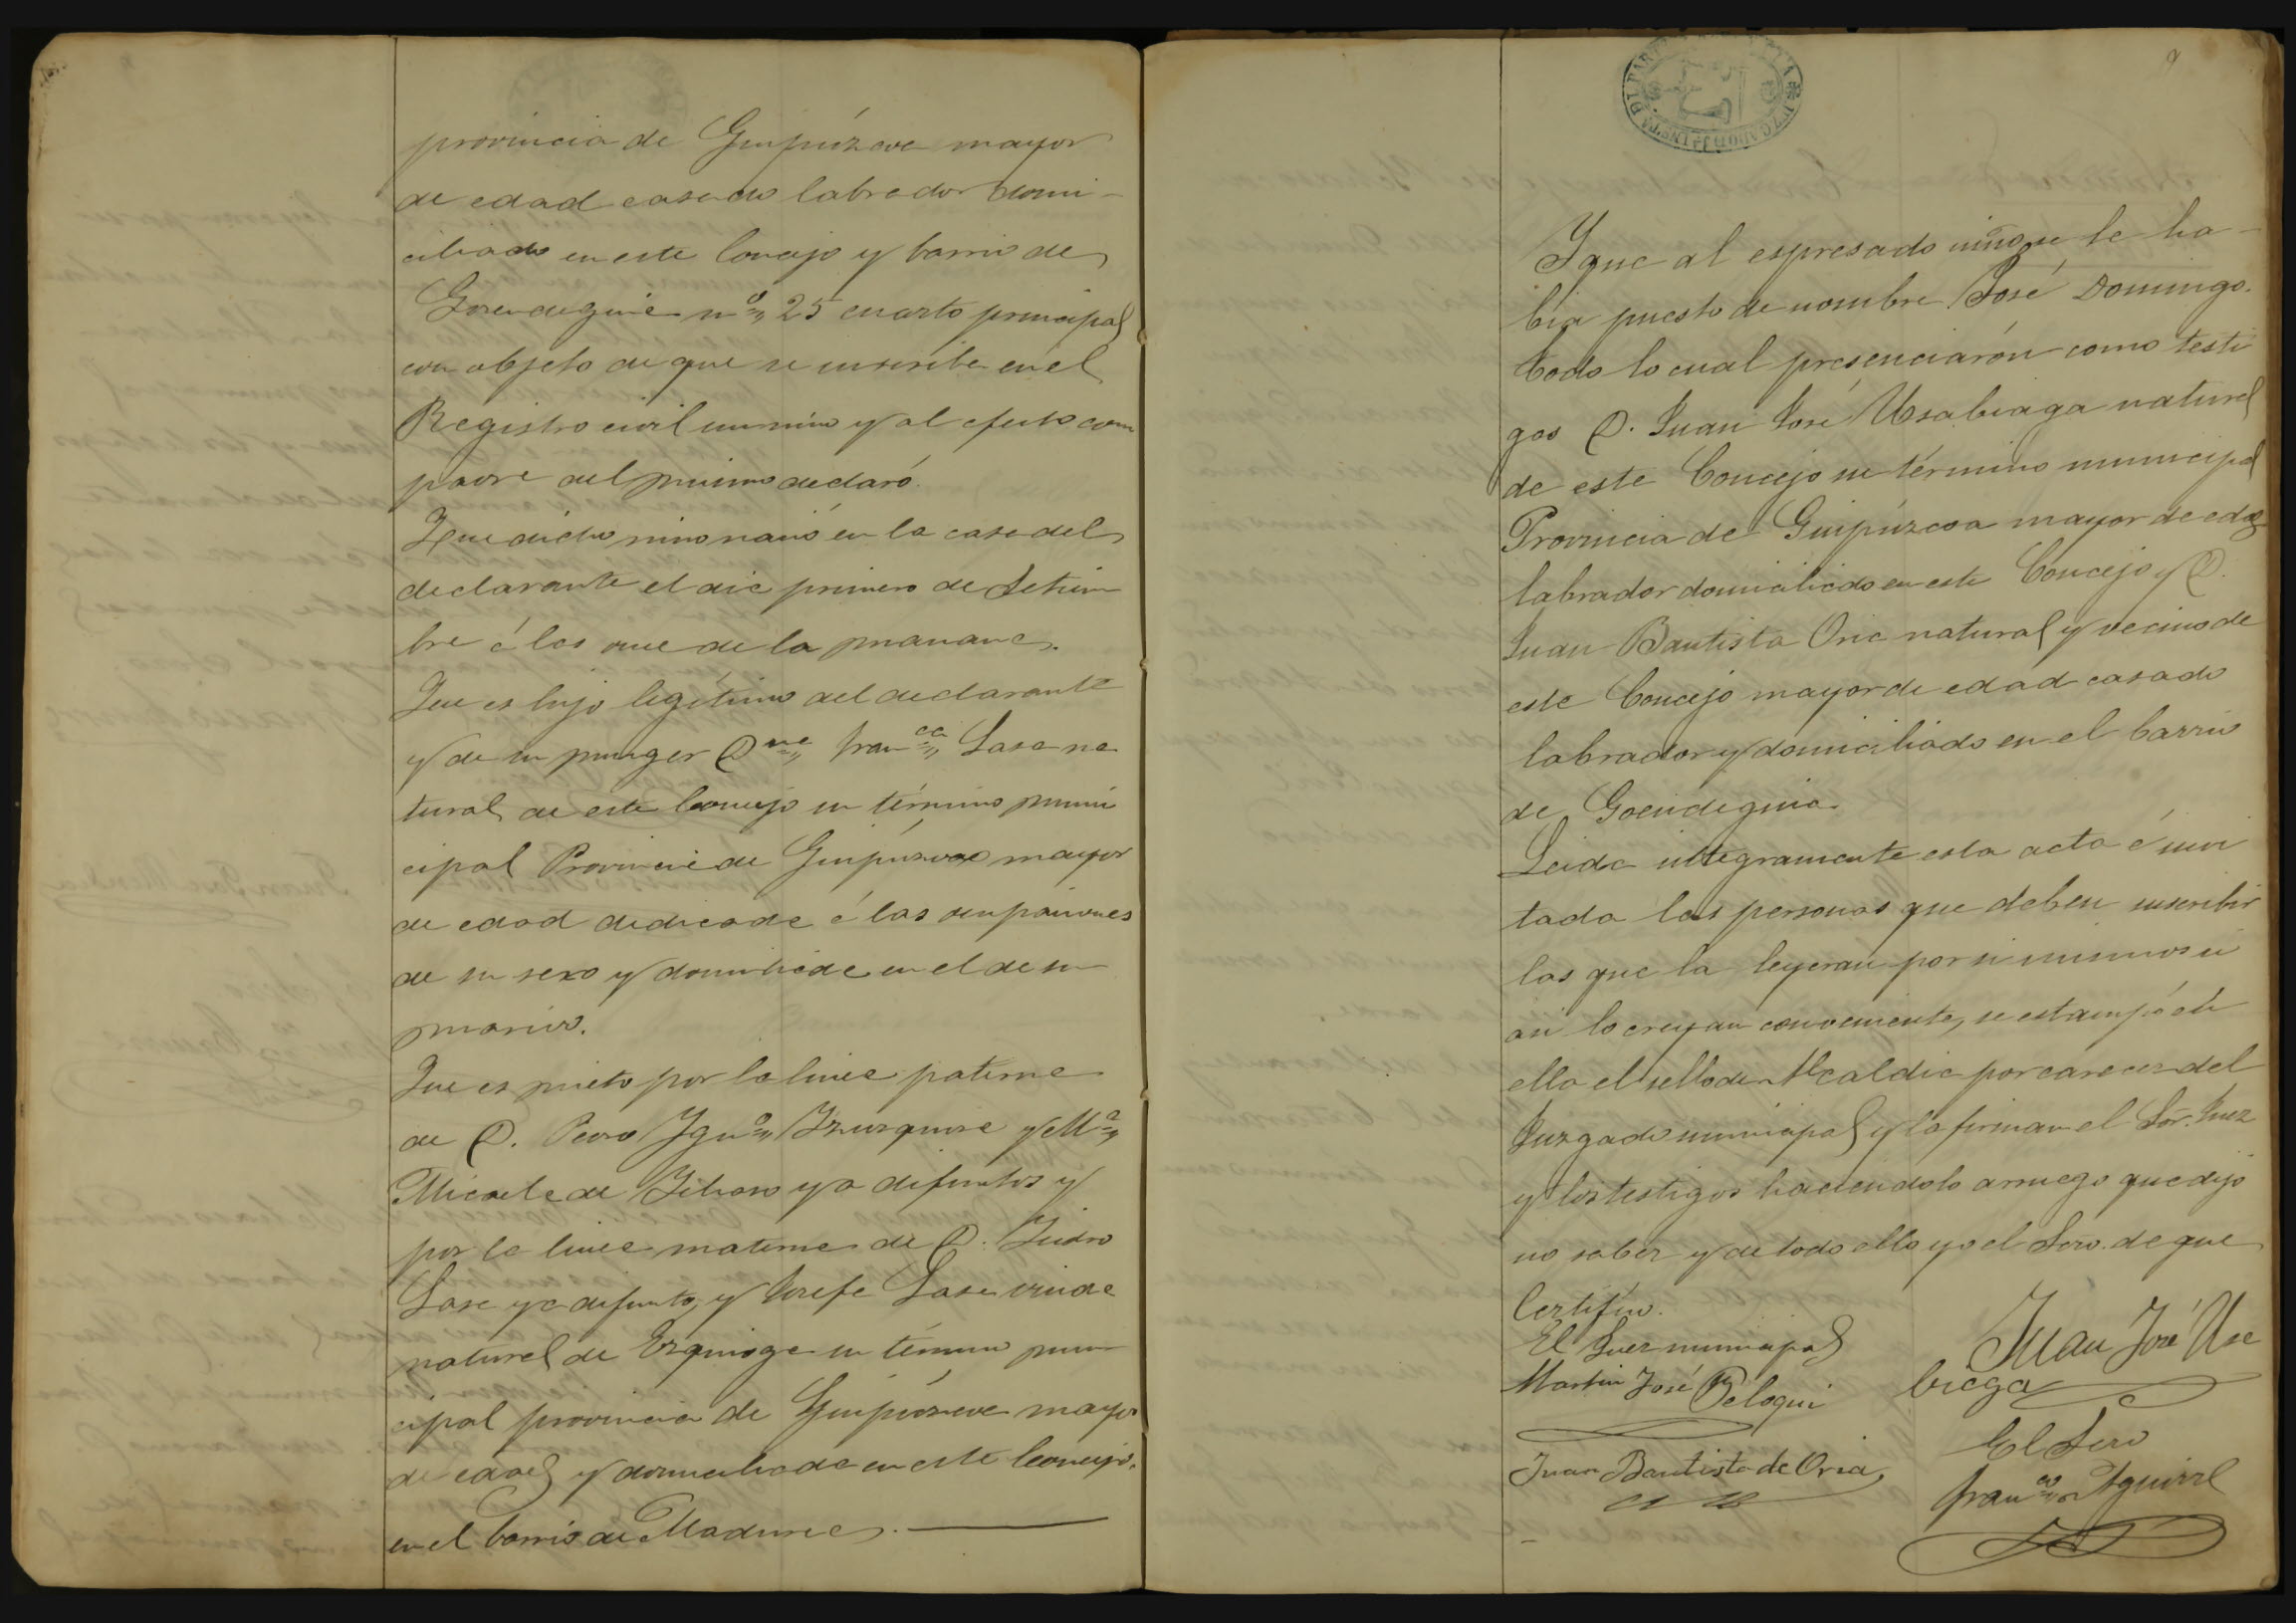 provincia de Guipúzcoa mayor
de edad casado labrador domi-
ciliado en este Concejo y barrio de
Goiendeguia nº 25 cuarto principal
con objeto de que se inscriba en el
Registro civil un niño y al efecto com
padre del mismo declaró.
Que dicho niño nació en la casa del
declarante el dia primero de Setiem
bre á las once de la mañana.
Que es hijo legítimo del declarante
y de su muger Dña Franca Lasa na
tural de este Concejo su término muni
cipal Provincia de Guipúzcoa mayor
de edad dedicada á las ocupaciones
de su sexo y domiciliada en el de su
marido.
Que es nieto por la linea paterna
de D. Pedro Igno Izurquiza y Ma
Micaela de ya difuntos y
por la linea materna de D. Isidro
Lasa ya difunto, y Josefa Lasa viuda
natural de Ezquioga su término muni
cipal provincia de Guipúzcoa mayor
de edad y domiciliada en este Concejo.
en el barrio de
9
Y que al espresado niño se le ha-
bía puesto de nombre José Domingo.
todo lo cual presenciarón como testi
gos D. Juan José Usabiaga natural
de este Concejo su término municipal
Provincia de Guipúzcoa mayor de edad
labrador domiciliado en este Concejo y D.
Juan Bautista Oria natural y vecino de
este Concejo mayor de edad casado
labrador y domiciliado en el barrio
de Goendeguia.
Leida integramente esta acta é invi
tada las personas que deben suscribir
las que la leyeran por si mismos si
asi lo creyan conveniente, se estampó en
ella el sello de Alcaldia por carecer del
Juzgado municipal y la firman el Sor. Juez
y los testigos haciendolo a ruego que dijo
no saber y de todo ello yo el Srio. de que
Certifico.
El Juez municipal
Martin José Beloqui
Juan José Usa
biaga
Juan Bautista de Oria
El Srio
Franco Aguirre